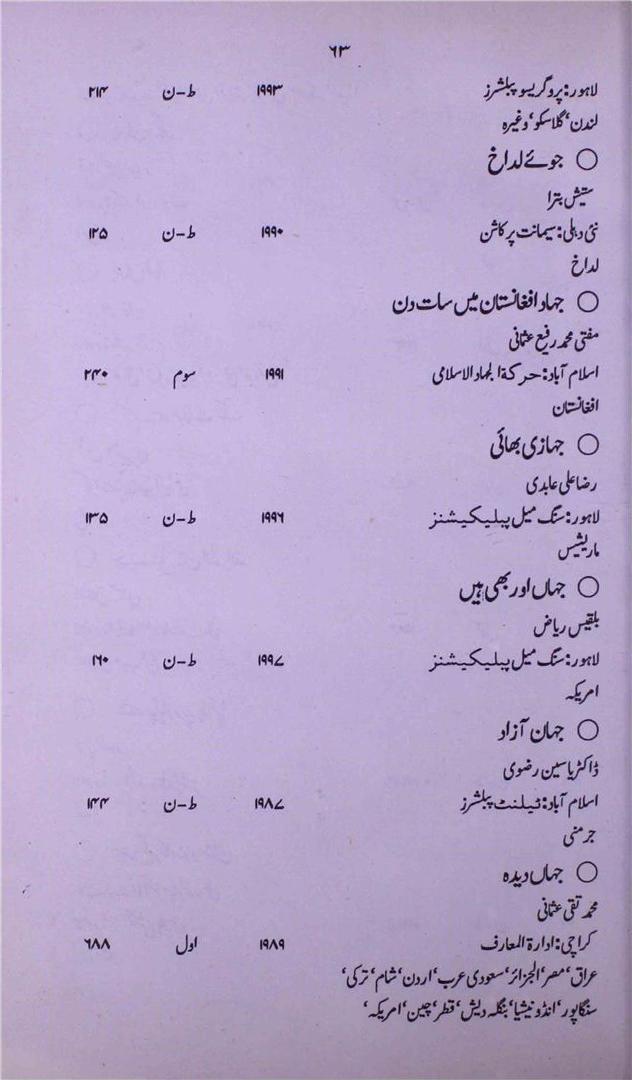 ۶۳
لاہور: پروگریسو پبلشرز ۱۹۹۳ ط-ن ۲۱۴
لندن، گلاسکو، وغیرہ
○ جوئے لداخ
ستیش بترا
نئی دہلی: سیمانت پرکاشن ۱۹۹۰ ط-ن ۱۲۵
لداخ
○ جہاد افغانستان میں سات دن
مفتی محمد رفیع عثمانی
اسلام آباد: حرکۃ الجہاد الاسلامی ۱۹۹۱ سوم ۲۴۰
افغانستان
○ جہازی بھائی
رضا علی عابدی
لاہور: سنگ میل پبلیکیشنز ۱۹۹۶ ط-ن ۱۳۵
ماریشیس
○ جہاں اور بھی ہیں
بلقیس ریاض
لاہور: سنگ میل پبلیکیشنز ۱۹۹۷ ط-ن ۱۶۰
امریکہ
○ جہان آزاد
ڈاکٹر یاسین رضوی
اسلام آباد: ٹیلنٹ پبلشرز ۱۹۸۷ ط-ن ۱۴۴
جرمنی
○ جہاں دیدہ
محمد تقی عثمانی
کراچی: ادارۃ المعارف ۱۹۸۹ اول ۶۸۸
عراق، مصر، الجزائر، سعودی عرب، اردن، شام، ترکی،
سنگاپور، انڈونیشیا، بنگلہ دیش، قطر، چین، امریکہ،